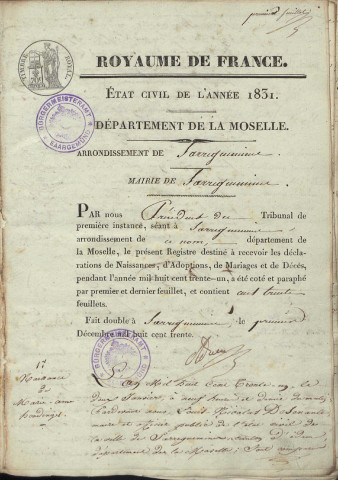 premier feuillet
TIMBRE ROYAL
ROYAUME DE FRANCE.
ÉTAT CIVIL DE L'ANNÉE 1831.
DÉPARTEMENT DE LA MOSELLE.
BÜRGERMEISTERAMT SAARGEMÜND
ARRONDISSEMENT DE Sarreguemines.
MAIRIE DE Sarreguemines.
PAR nous Président du Tribunal de
première instance, séant à Sarreguemines
arrondissement de ce nom, département de
la Moselle, le présent Registre destiné à recevoir les décla-
rations de Naissances, d'Adoptions, de Mariages et de Décès,
pendant l'année mil huit cent trente-un, a été coté et paraphé
par premier et dernier feuillet, et contient cent trente
feuillets.
Fait double à Sarreguemines le premier
Décembre mil huit cent trente.
Naissance
de
Marie anne
L'an Mil Huit Cent Trente un le
deux Janvier, à neuf heures et demie du matin
Pardevant nous, Louis Nicolas
maire et officier public de l'état civil de
la ville de Sarreguemines
département de la Moselle, sont comparus